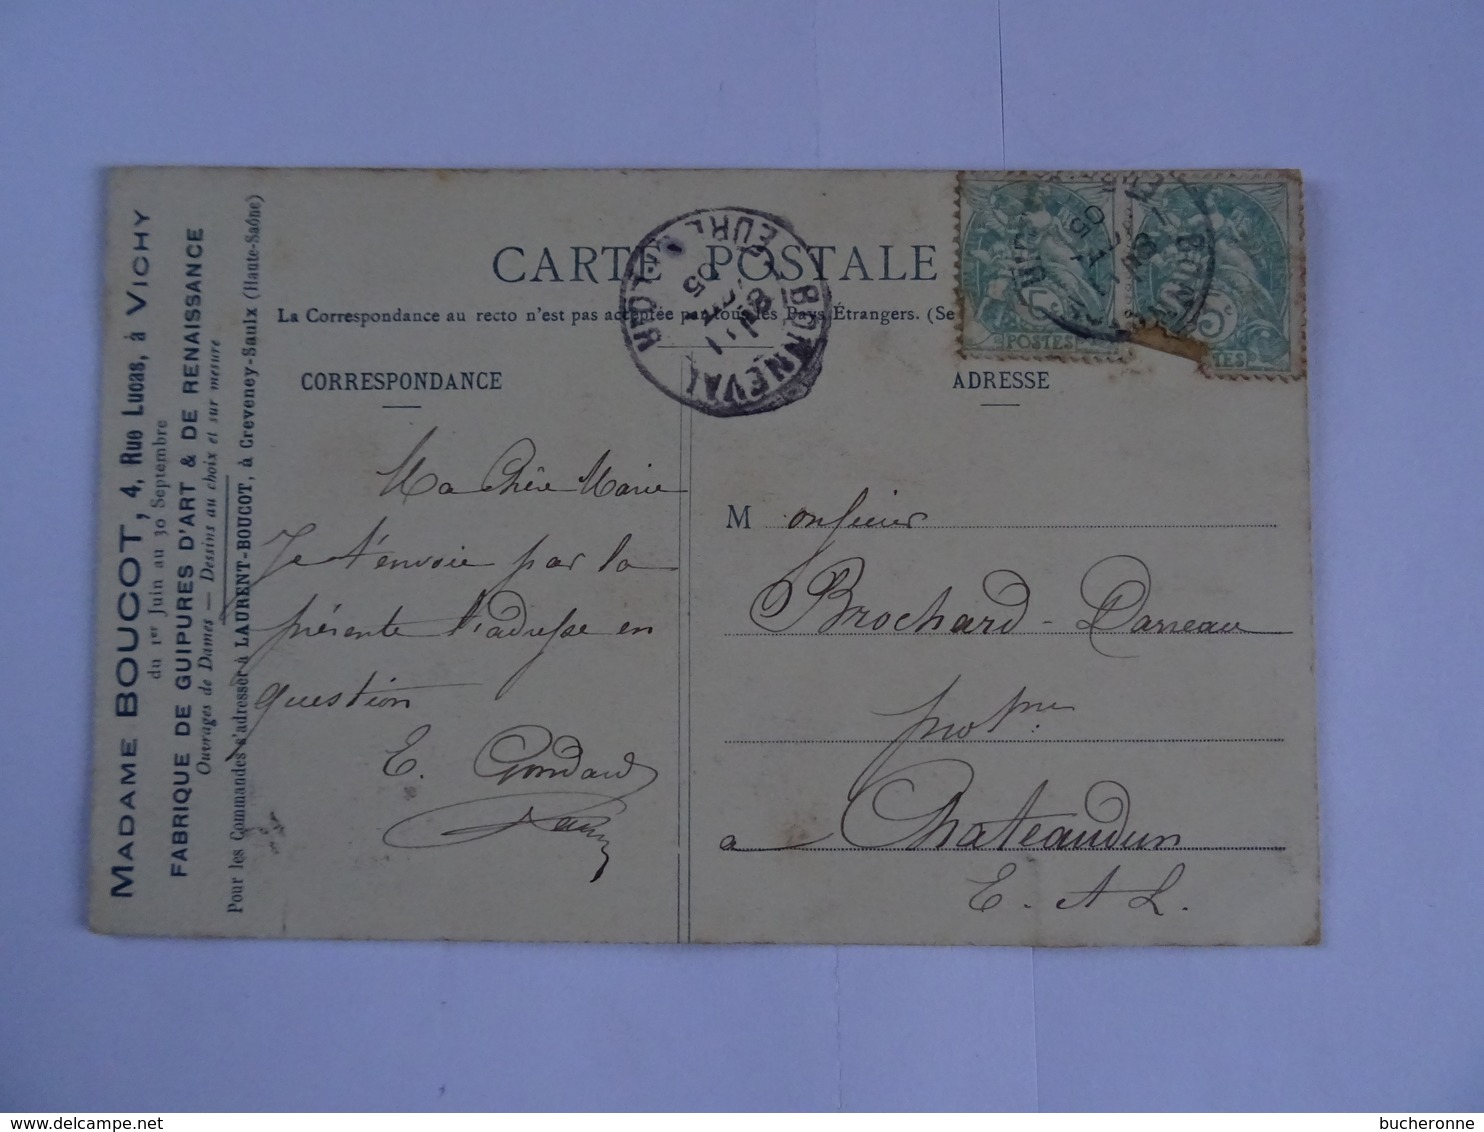 MADAME BOUCOT, 4, Rue Lucas, à VICHY
du 1er Juin au 30 Septembre
FABRIQUE DE GUIPURES D'ART & DE RENAISSANCE
Ouvrages de Dames — Dessins au choix et sur mesure
Pour les Commandes s'adresser à LAURENT-BOUCOT, à Creveney-Saulx (Haute-Saône)
CARTE POSTALE
La Correspondance au recto n'est pas acceptée par tous les Pays Étrangers. (Se
CORRESPONDANCE
Ma Chère Marie
Je t'envoie par la
présente l'adresse en
question
E. Gondard
ADRESSE
Monsieur
Brochard-Darreau
prop.re
a Chateaudun
E. A L.
BONNEVAL
EURE
05
POSTES
5c
TES
bucheronne